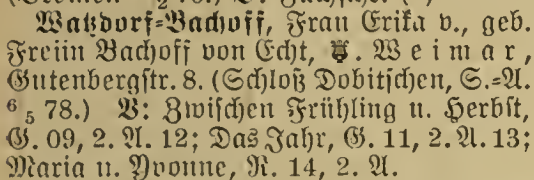 Watzdorf=Bachoff, Frau Erika v., geb.
Freiin Bachoff von Echt, Weimar,
Gutenbergstr. 8. (Schloß Dobitschen, S.=A.
6 5 78.) V: Zwischen Frühling u. Herbst,
G. 09, 2. A. 12; Das Jahr, G. 11, 2. A. 13;
Maria u. Yvonne, R. 14, 2. A.